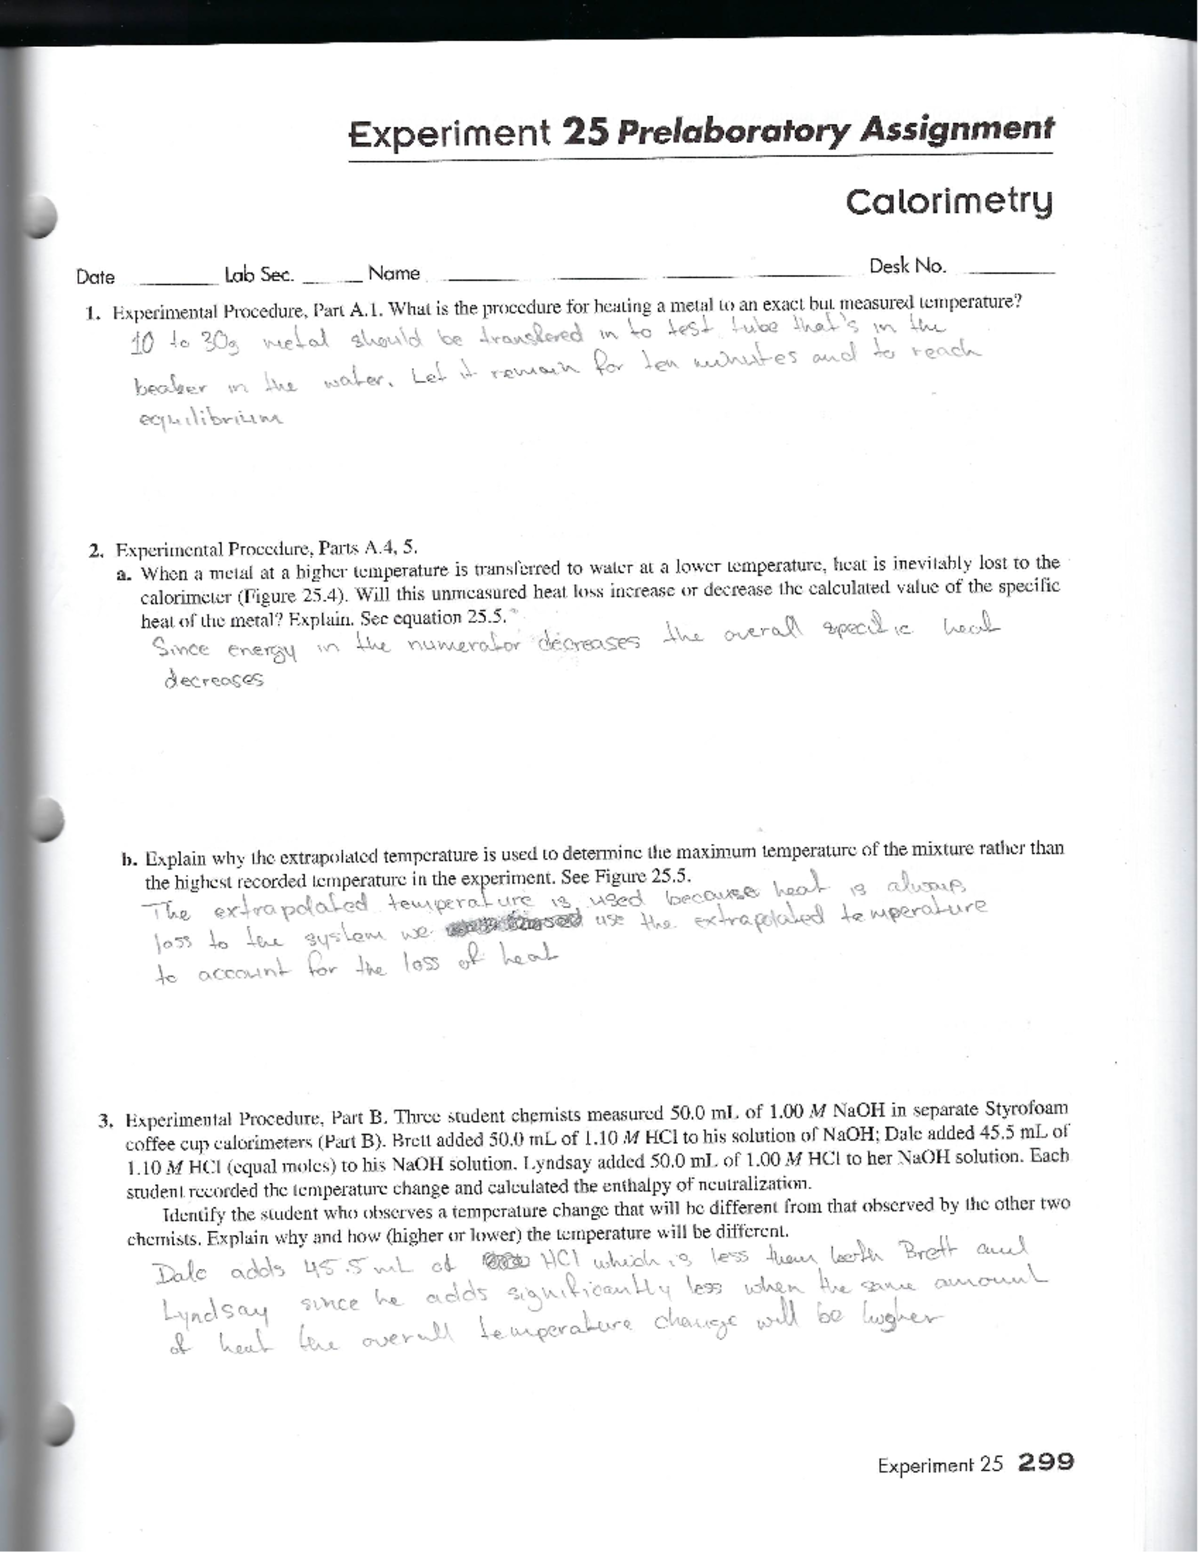 Experiment 25 Prelaboratory Assignment
Calorimetry
Date Lab Sec. Name Desk No.
1. Experimental Procedure, Part A.1. What is the procedure for heating a metal to an exact but measured temperature?
10 to 30g metal should be transfered in to test tube that's in the
beaker in the water. Let it remain for ten minutes and to reach
equilibrium
2. Experimental Procedure, Parts A.4, 5.
a. When a metal at a higher temperature is transferred to water at a lower temperature, heat is inevitably lost to the
calorimeter (Figure 25.4). Will this unmeasured heat loss increase or decrease the calculated value of the specific
heat of the metal? Explain. See equation 25.5.
Since energy in the numerator decreases the overall specific heat
decreases
b. Explain why the extrapolated temperature is used to determine the maximum temperature of the mixture rather than
the highest recorded temperature in the experiment. See Figure 25.5.
The extrapolated temperature is used because heat is always
loss to the system we use the extrapolated temperature
to account for the loss of heat
3. Experimental Procedure, Part B. Three student chemists measured 50.0 mL of 1.00 M NaOH in separate Styrofoam
coffee cup calorimeters (Part B). Brett added 50.0 mL of 1.10 M HCl to his solution of NaOH; Dale added 45.5 mL of
1.10 M HCl (equal moles) to his NaOH solution. Lyndsay added 50.0 mL of 1.00 M HCl to her NaOH solution. Each
student recorded the temperature change and calculated the enthalpy of neutralization.
Identify the student who observes a temperature change that will be different from that observed by the other two
chemists. Explain why and how (higher or lower) the temperature will be different.
Dale adds 45.5 mL of HCl which is less then both Brett and
Lyndsay since he adds significantly less when the same amount
of heat the overall temperature change will be higher
Experiment 25 299